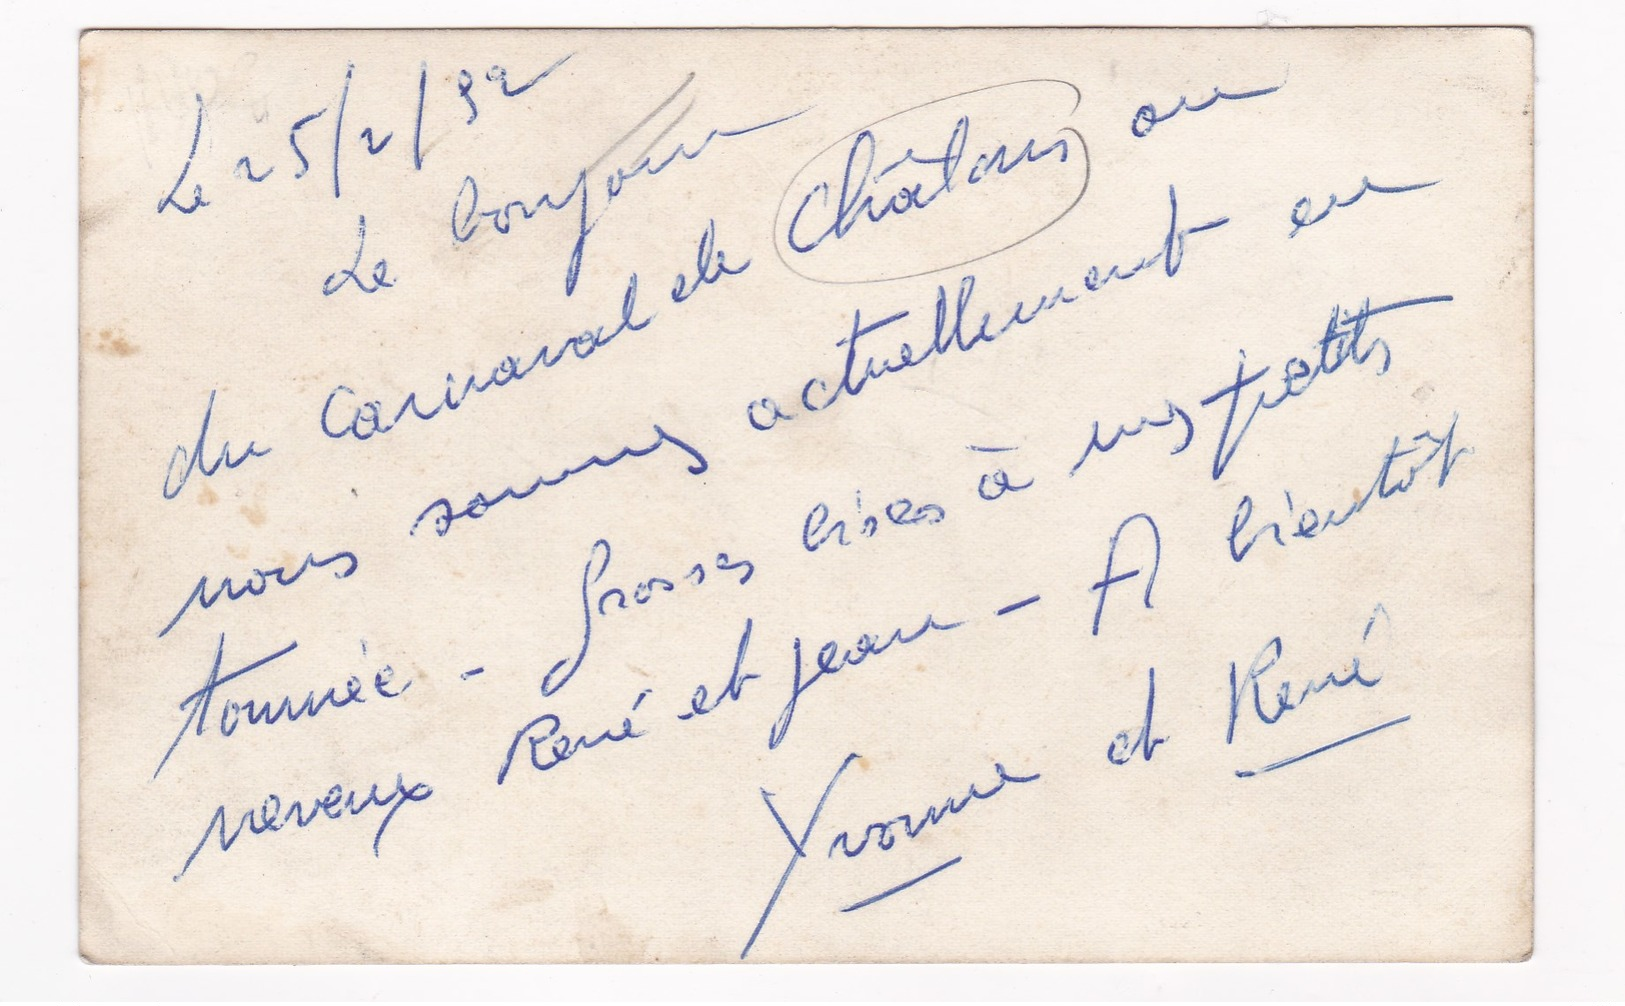 Le 25/2/32
Le bonjour
du Carnaval de Châlons ou
nous sommes actuellement en
tournée - Grosses bises à nos petits
neveux René et Jean - A bientôt
Yvonne et René